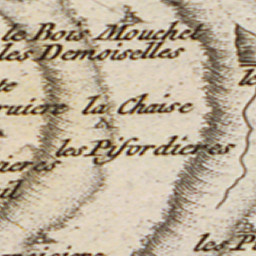 le Bois Mouchet
les Demoiselles
la Chaise
les Pifordieres
ieres
il
les P